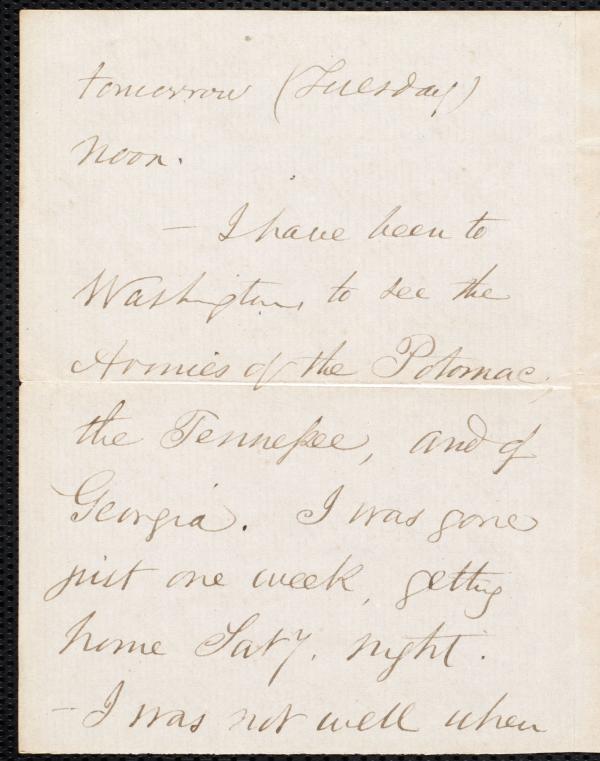 tomorrow (Tuesday)
noon.
— I have been to
Washington, to see the
Armies of the Potomac,
the Tennessee, and of
Georgia. I was gone
just one week, getting
home Saty. night.
— I was not well when